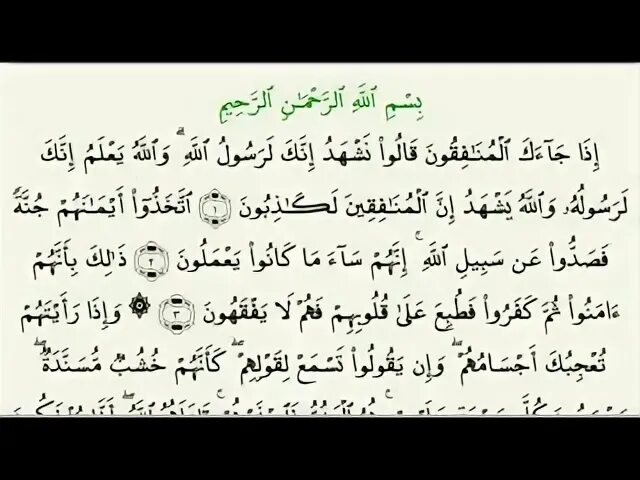 بِسْمِ ٱللَّهِ ٱلرَّحْمَٰنِ ٱلرَّحِيمِ
إِذَا جَآءَكَ ٱلْمُنَٰفِقُونَ قَالُوا۟ نَشْهَدُ إِنَّكَ لَرَسُولُ ٱللَّهِ ۗ وَٱللَّهُ يَعْلَمُ إِنَّكَ
لَرَسُولُهُۥ وَٱللَّهُ يَشْهَدُ إِنَّ ٱلْمُنَٰفِقِينَ لَكَٰذِبُونَ ١ ٱتَّخَذُوٓا۟ أَيْمَٰنَهُمْ جُنَّةً
فَصَدُّوا۟ عَن سَبِيلِ ٱللَّهِ ۚ إِنَّهُمْ سَآءَ مَا كَانُوا۟ يَعْمَلُونَ ٢ ذَٰلِكَ بِأَنَّهُمْ
ءَامَنُوا۟ ثُمَّ كَفَرُوا۟ فَطُبِعَ عَلَىٰ قُلُوبِهِمْ فَهُمْ لَا يَفْقَهُونَ ٣ ۞ وَإِذَا رَأَيْتَهُمْ
تُعْجِبُكَ أَجْسَامُهُمْ ۖ وَإِن يَقُولُوا۟ تَسْمَعْ لِقَوْلِهِمْ ۖ كَأَنَّهُمْ خُشُبٌ مُّسَنَّدَةٌ ۖ